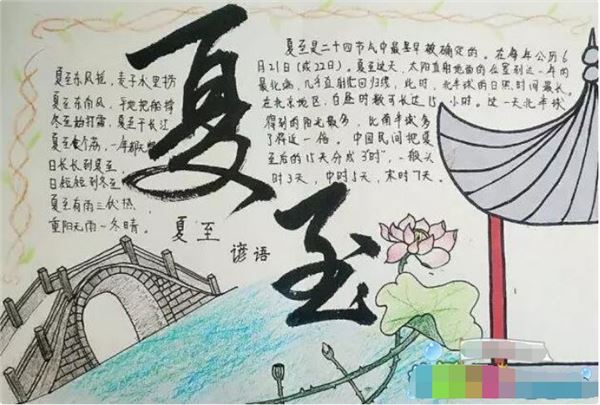 夏至
夏至东风摇，麦子水里捞
夏至东南风，平地把船撑
冬至始打霜，夏至干长江
夏至食个荔，一年都无
日长长到夏至，
日短短到冬至
夏至有雨三伏热，
重阳无雨一冬晴。
夏至
谚语
夏至是二十四节气中最早被确定的。在每年公历6
月21日(或22日)。夏至这天，太阳直射地面的位置到达一年的
最北端，几乎直射北回归线，此时，北半球的日照时间最长。
在北京地区，白昼时数可长达15小时。这一天北半球
得到的阳光最多，比南半球多
了将近一倍。中国民间把夏
至后的15天分成3"时"，一般头
时3天，中时5天，末时7天。